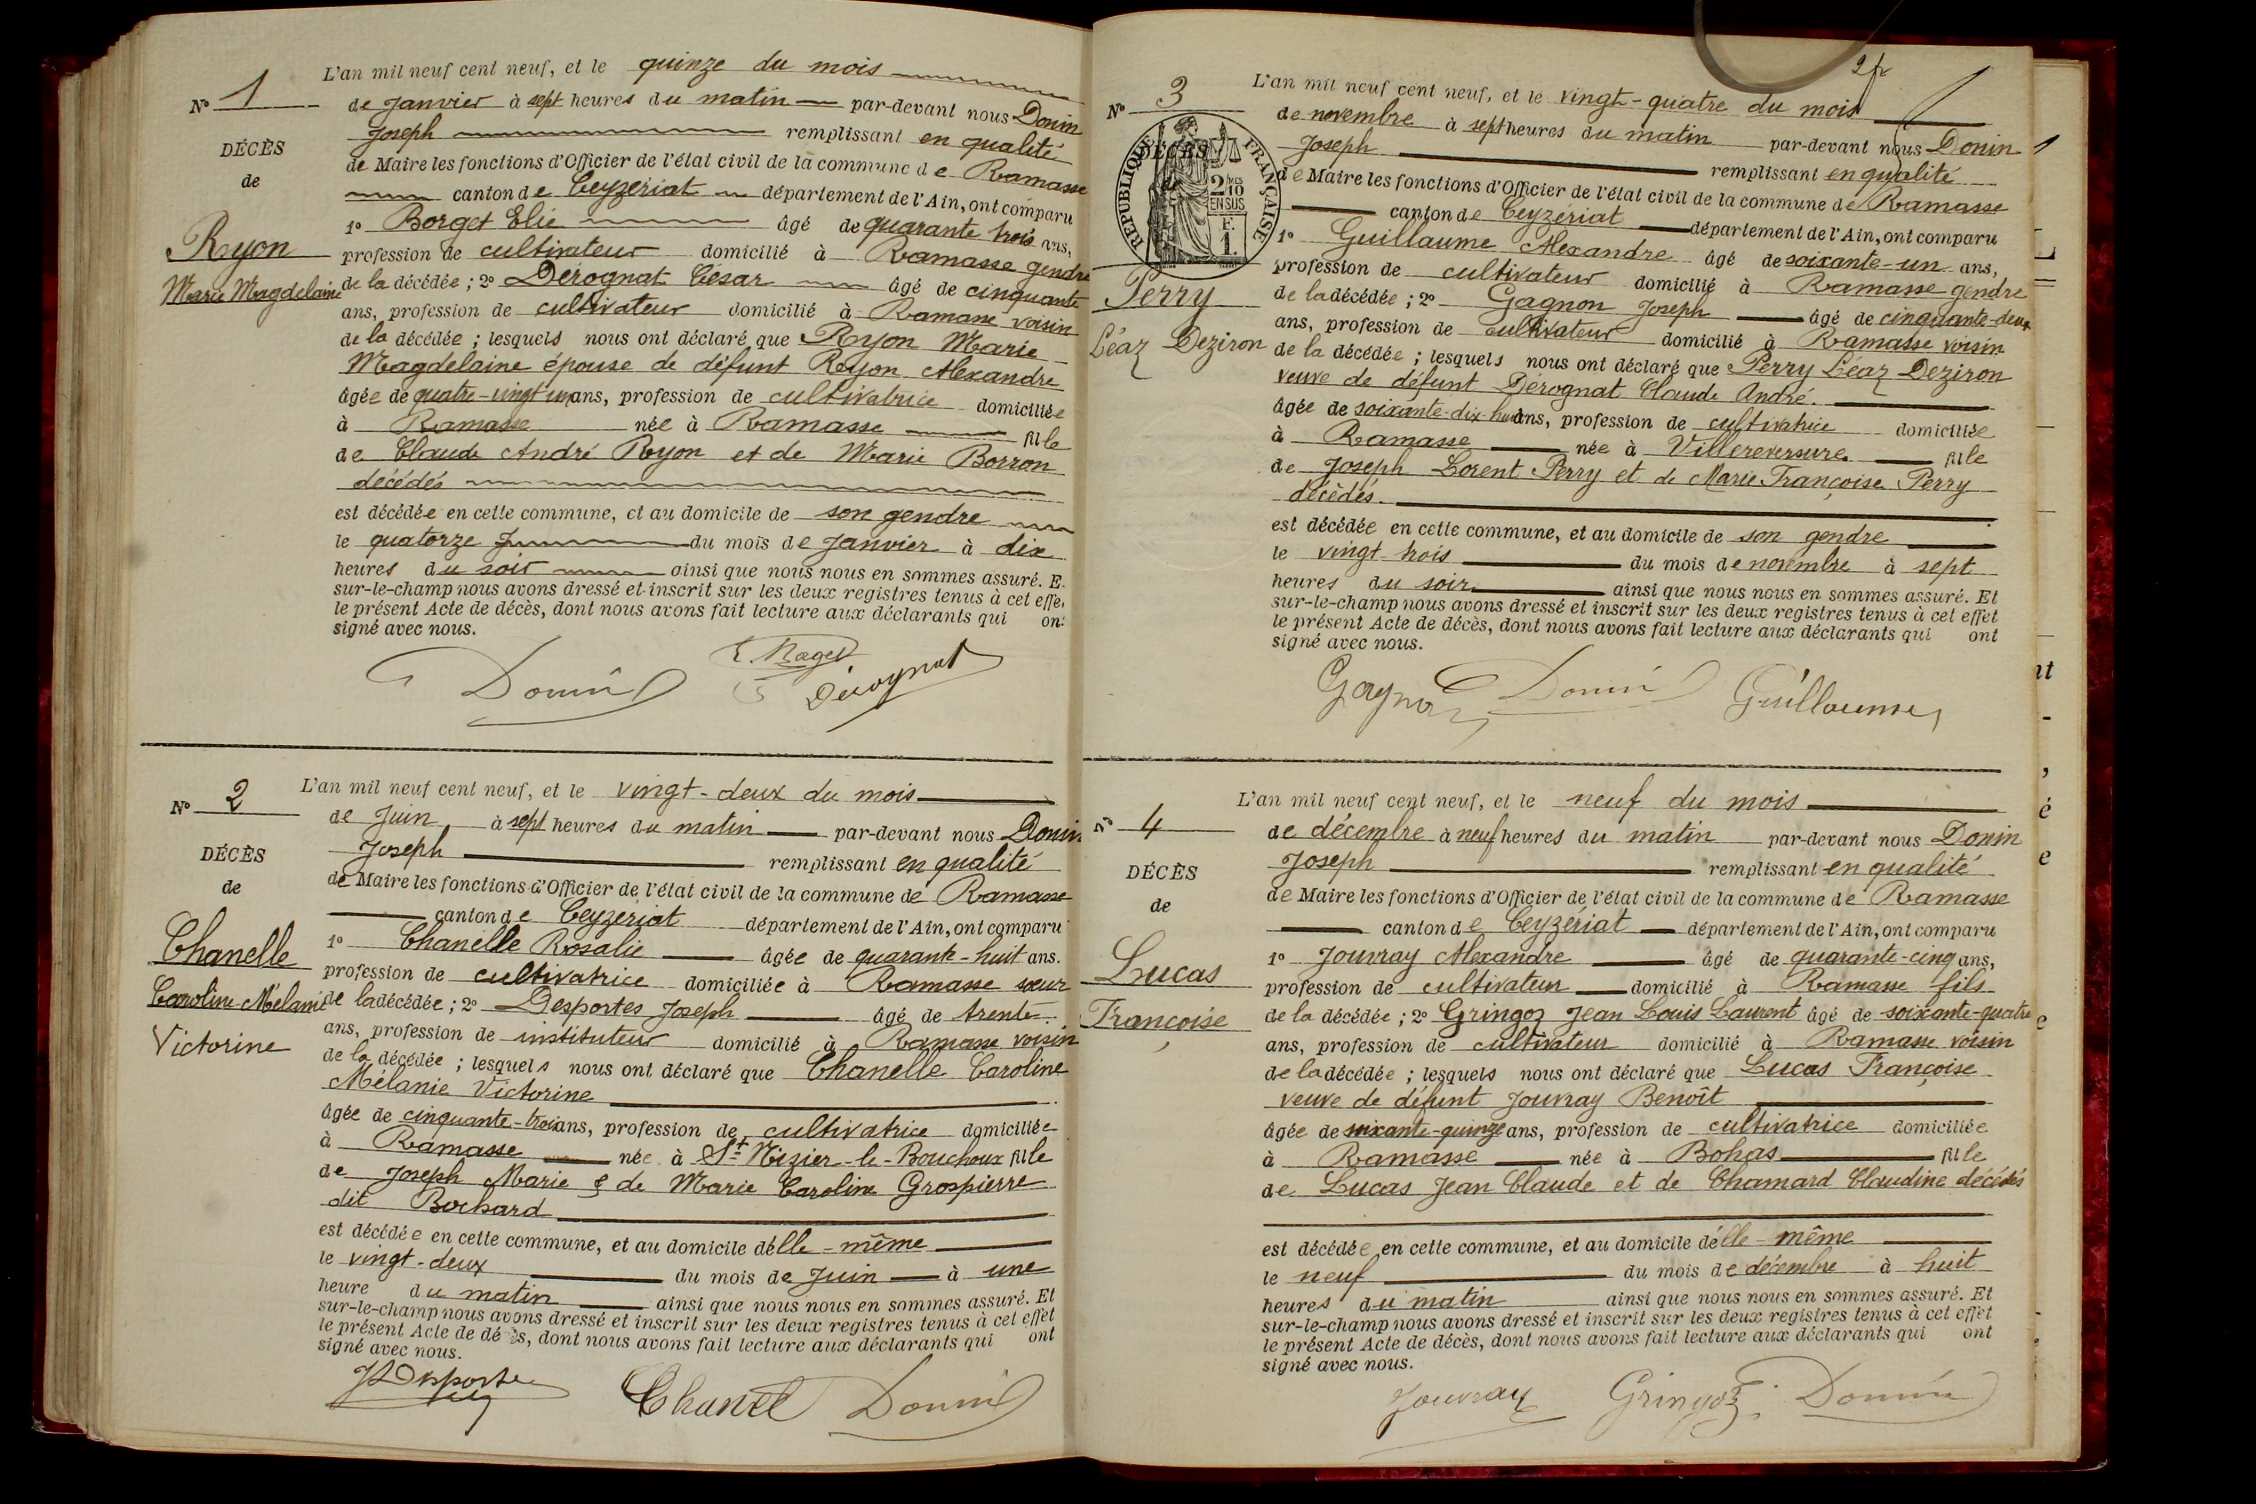 L'an mil neuf cent neuf, et le quinze du mois
N° 1
de Janvier à sept heures du matin par-devant nous Donin
Joseph remplissant en qualité
DÉCÈS
de Maire les fonctions d'Officier de l'état civil de la commune de Ramasse
de
canton de Ceyzeriat département de l'Ain, ont comparu
1° Borget Elie âgé de quarante trois ans,
Ryon
profession de cultivateur domicilié à Ramasse gendre
Marie Magdelaine
de la décédée ; 2° Dérognat César âgé de cinquante
ans, profession de cultivateur domicilié à Ramasse voisin
de la décédée ; lesquels nous ont déclaré que Ryon Marie
Magdelaine épouse de défunt Royon Alexandre
âgée de quatre-vingt un ans, profession de cultivatrice domiciliée
à Ramasse née à Ramasse fille
de Claude André Ryon et de Marie Borron
décédés
est décédée en cette commune, et au domicile de son gendre
le quatorze du mois de Janvier à dix
heures du soir ainsi que nous nous en sommes assuré. E
sur-le-champ nous avons dressé et inscrit sur les deux registres tenus à cet effe
le présent Acte de décès, dont nous avons fait lecture aux déclarants qui on
signé avec nous.
Donin
Dérognat
L'an mil neuf cent neuf, et le vingt-deux du mois
N° 2
de Juin à sept heures du matin par-devant nous Donin
Joseph remplissant en qualité
DÉCÈS
de Maire les fonctions d'Officier de l'état civil de la commune de Ramasse
de
canton de Ceyzeriat département de l'Ain, ont comparu
Chanelle
1° Chanelle Rosalie âgée de quarante-huit ans.
profession de cultivatrice domiciliée à Ramasse sœur
Caroline Mélanie
de la décédée ; 2° Desportes Joseph âgé de trente
Victorine
ans, profession de instituteur domicilié à Ramasse voisin
de la décédée ; lesquels nous ont déclaré que Chanelle Caroline
Mélanie Victorine
âgée de cinquante-trois ans, profession de cultivatrice domiciliée
à Ramasse née à St Nizier-le-Bouchoux fille
de Joseph Marie & de Marie Caroline Grospierre
dit Bochard
est décédée en cette commune, et au domicile d'elle-même
le vingt-deux du mois de Juin à une
heure du matin ainsi que nous nous en sommes assuré. Et
sur-le-champ nous avons dressé et inscrit sur les deux registres tenus à cet effet
le présent Acte de décès, dont nous avons fait lecture aux déclarants qui ont
signé avec nous.
Desportes Chanel Donin
2 fr
L'an mil neuf cent neuf, et le vingt-quatre du mois
N° 3
de novembre à sept heures du matin par-devant nous Donin
Joseph remplissant en qualité
DÉCÈS
RÉPUBLIQUE FRANÇAISE
2/10 MES EN SUS
F. 1.
de Maire les fonctions d'Officier de l'état civil de la commune de Ramasse
canton de Ceyzeriat département de l'Ain, ont comparu
1° Guillaume Alexandre âgé de soixante-un ans,
profession de cultivateur domicilié à Ramasse gendre
Perry
de la décédée ; 2° Gagnon Joseph âgé de cinquante-deux
Léaz Deziron
ans, profession de cultivateur domicilié à Ramasse voisin
de la décédée ; lesquels nous ont déclaré que Perry Léaz Deziron
veuve de défunt Dérognat Claude André.
âgée de soixante-dix-huit ans, profession de cultivatrice domiciliée
à Ramasse née à Villereversure fille
de Joseph Lorent Perry et de Marie Françoise Perry
décédés.
est décédée en cette commune, et au domicile de son gendre
le vingt-trois du mois de novembre à sept
heures du soir ainsi que nous nous en sommes assuré. Et
sur-le-champ nous avons dressé et inscrit sur les deux registres tenus à cet effet
le présent Acte de décès, dont nous avons fait lecture aux déclarants qui ont
signé avec nous.
Gagnon Donin Guillaume
L'an mil neuf cent neuf, et le neuf du mois
N° 4
de décembre à neuf heures du matin par-devant nous Donin
Joseph remplissant en qualité
DÉCÈS
de Maire les fonctions d'Officier de l'état civil de la commune de Ramasse
de
canton de Ceyzériat département de l'Ain, ont comparu
1° Jouvray Alexandre âgé de quarante-cinq ans,
Lucas
profession de cultivateur domicilié à Ramasse fils
Françoise
de la décédée ; 2° Gringoz Jean Louis Laurent âgé de soixante-quatre
ans, profession de cultivateur domicilié à Ramasse voisin
de la décédée ; lesquels nous ont déclaré que Lucas Françoise
veuve de défunt Jouvray Benoît
âgée de soixante-quinze ans, profession de cultivatrice domiciliée
à Ramasse née à Bohas fille
de Lucas Jean Claude et de Chamard Claudine décédés
est décédée en cette commune, et au domicile d'elle-même
le neuf du mois de décembre à huit
heures du matin ainsi que nous nous en sommes assuré. Et
sur-le-champ nous avons dressé et inscrit sur les deux registres tenus à cet effet
le présent Acte de décès, dont nous avons fait lecture aux déclarants qui ont
signé avec nous.
Jouvray Gringoz Donin